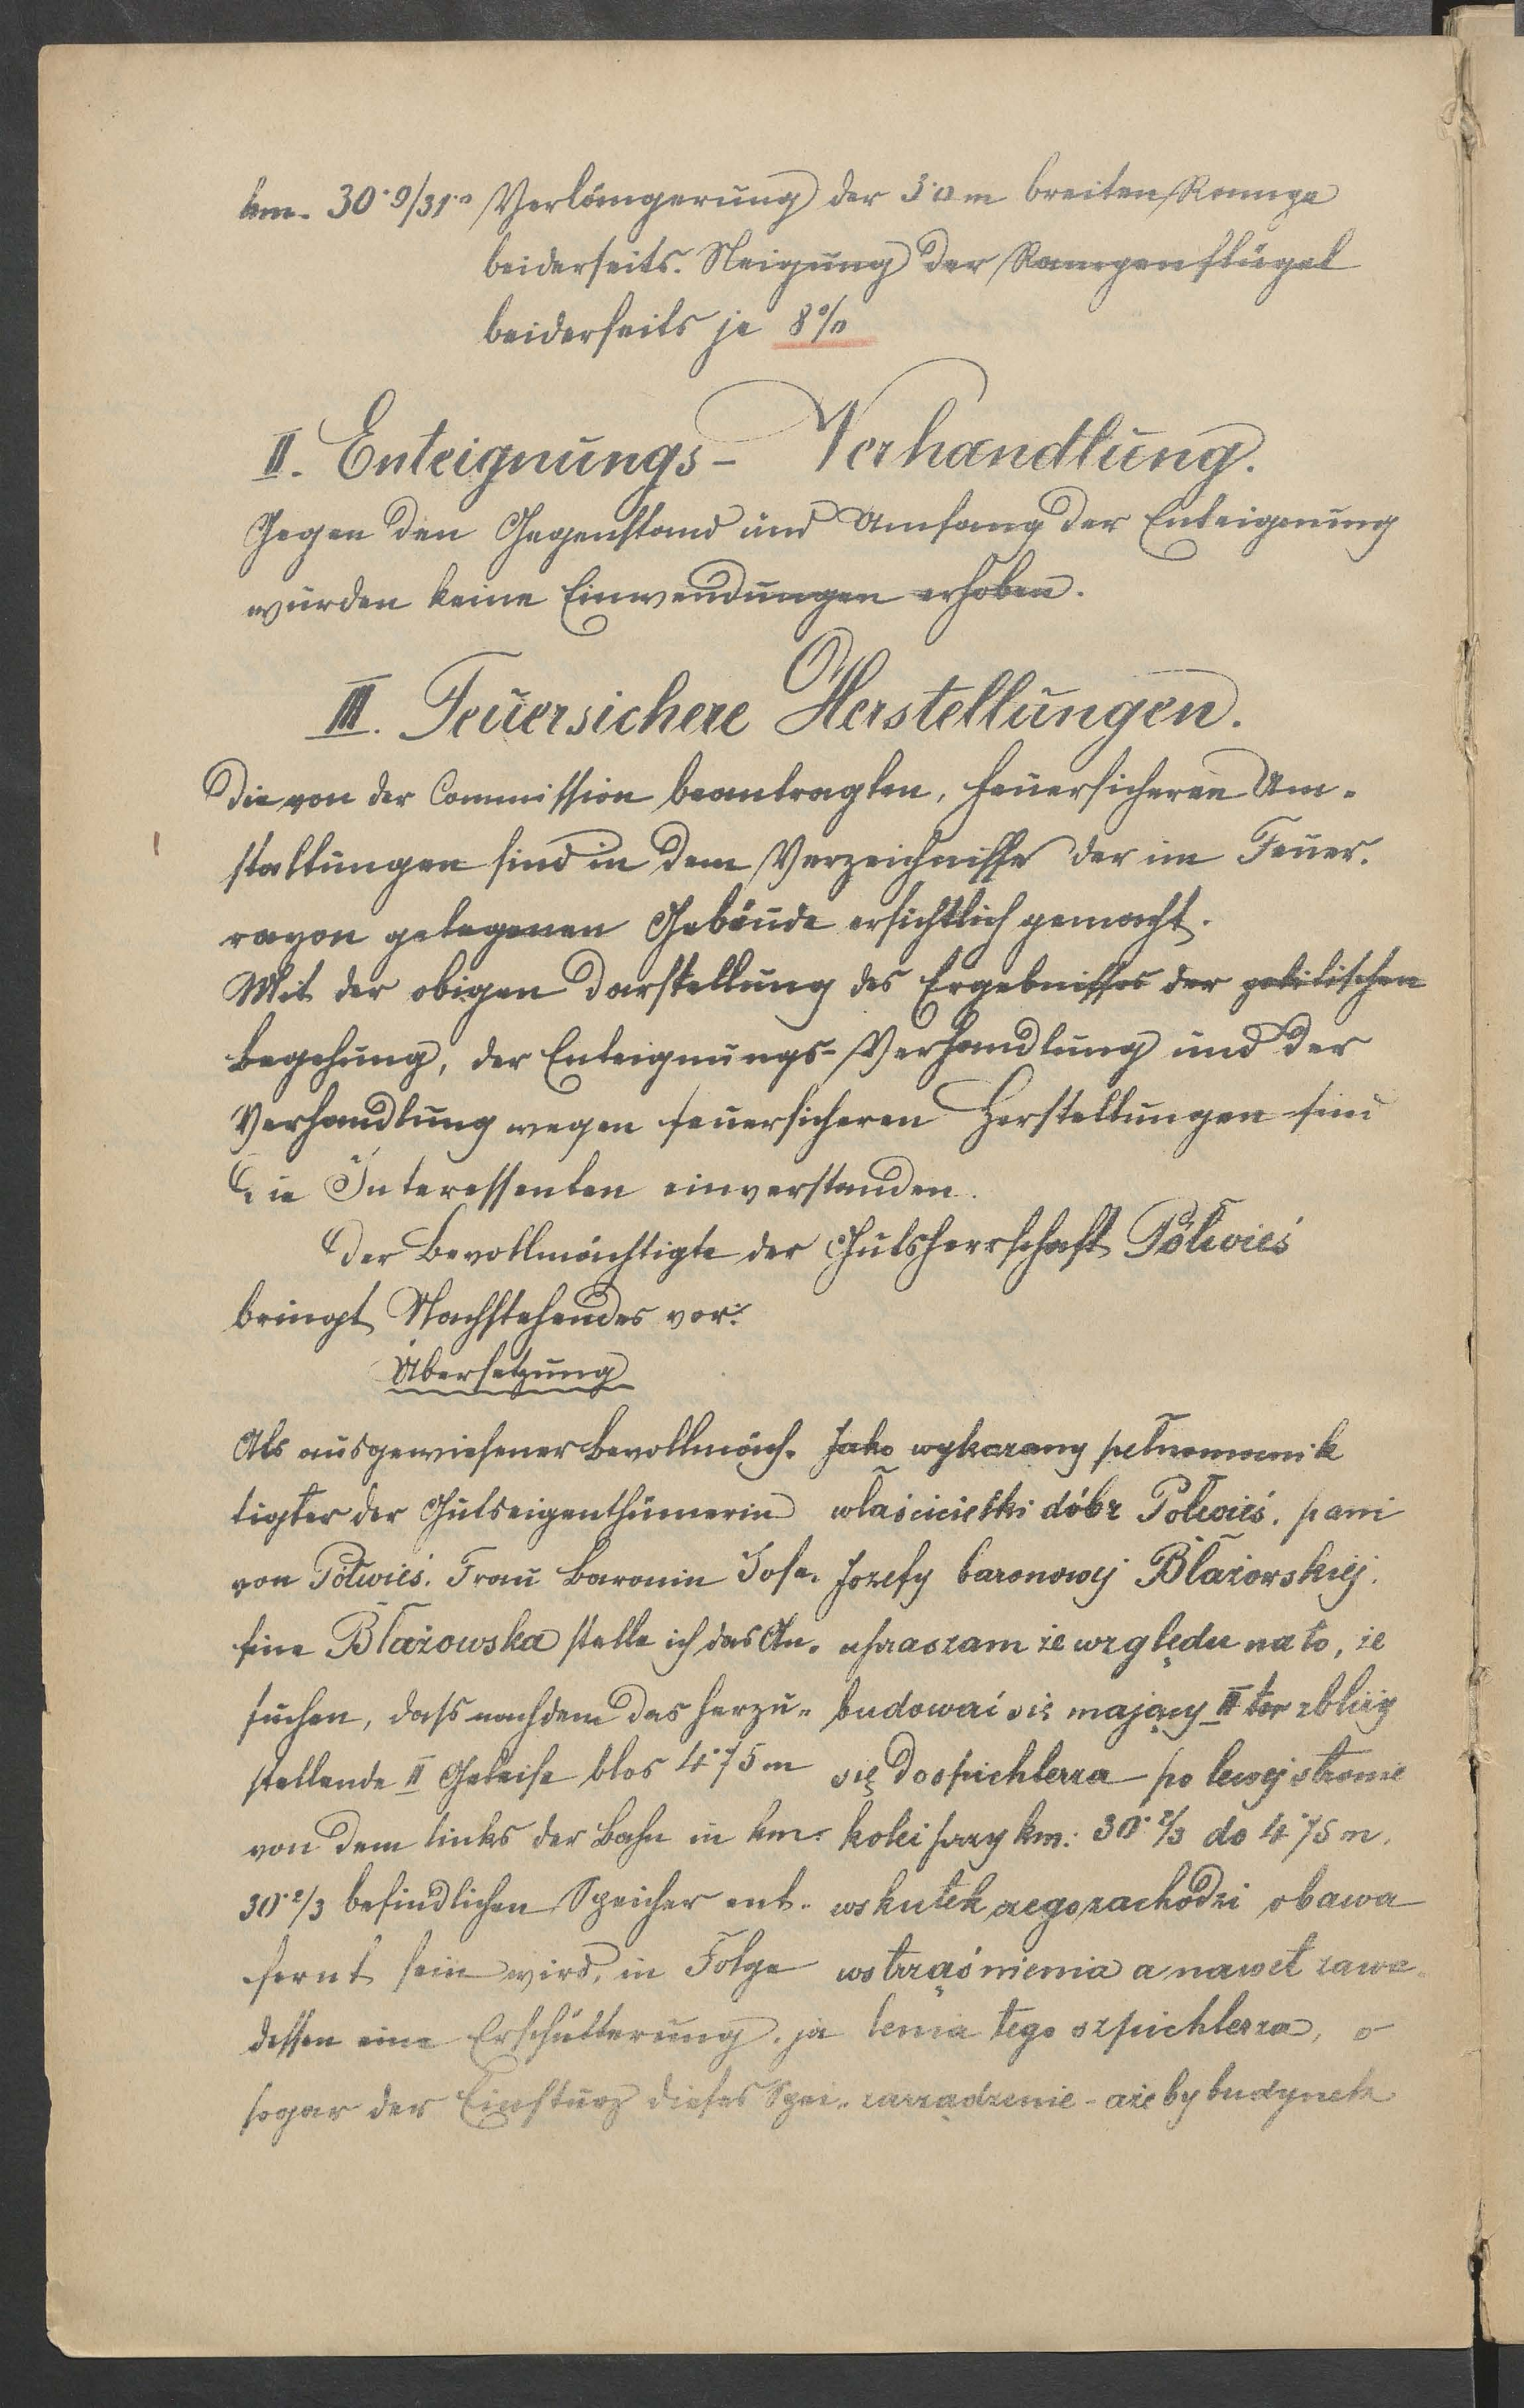 km. 30·9/31·0 Verlängerung der 3·0 m breiten Rampe
beiderseits. Neigung der Rampenflügel
beiderseits je 8%
II. Enteignungs- Verhandlung.
Gegen den Gegenstand und Umfang der Enteignung
wurden keine Einwendungen erhoben.
III. Feuersichere Herstellungen.
Die von der Commission beantragten, feuersicheren Um-
staltungen sind in dem Verzeichnisse der im Feuer-
rayon gelegenen Gebäude ersichtlich gemacht.
Mit der obigen Darstellung des Ergebnisses der politischen
Begehung, der Enteignungs-Verhandlung und der
Verhandlung wegen feuersicheren Herstellungen sind
die Interessenten einverstanden.
Der Bevollmächtigte der Gutsherrschaft Pólwieś
bringt Nachstehendes vor:
Übersetzung
Als ausgewiesener Bevollmäch-
tigter der Gutseigenthümerin
von Pólwieś. Frau Baronin Jose-
fine Błażowska stelle ich das An-
suchen, dass nachdem das herzu-
stellende II Geleise blos 4·75 m
von dem links der Bahn in km.
30·2/3 befindlichen Speicher ent-
fernt sein wird, in Folge
dessen eine Erschütterung, ja
sogar der Einsturz dieses Spei-
Jako wykazany pełnomocnik
właścicielki dóbr Polwieś. pani
Jozefy baronowej Błażowskiej.
upraszam ze względu na to, że
budować się mający II tor zbliży
się do spichlerza po lewej stronie
kolei przy km: 30·2/3 do 4·75 m,
wskutek czego zachodzi obawa
wstrząśnienia a nawet zawa-
lenia tego szpichlerza, o
zarządzenie - ażeby budynek